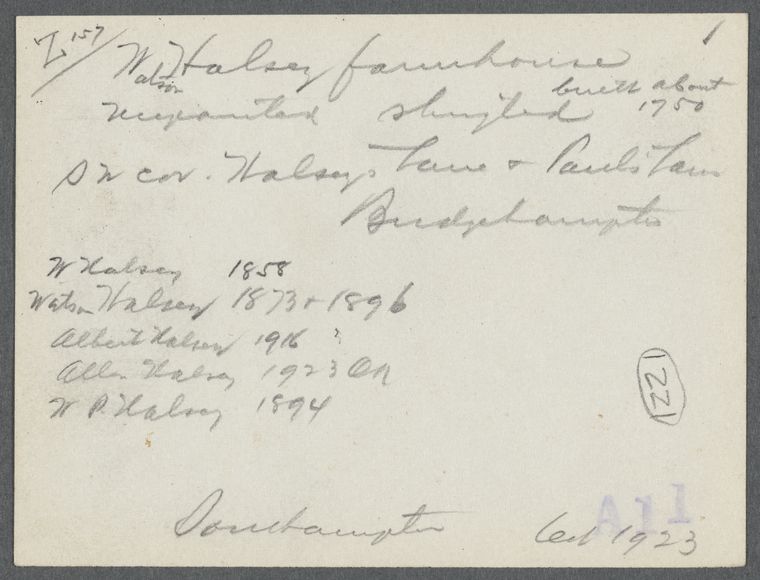 Z 157
1
Watson Halsey farmhouse
unpainted shingled built about 1750
SW cor. Halsey's Lane + Paul's Lane
Bridgehampton
W Halsey 1858
Watson Halsey 1873 + 1896
Albert Halsey 1916 ?
Allen Halsey 1923 OR
W P. Halsey 1894
1221
Southampton Oct 1923
A11